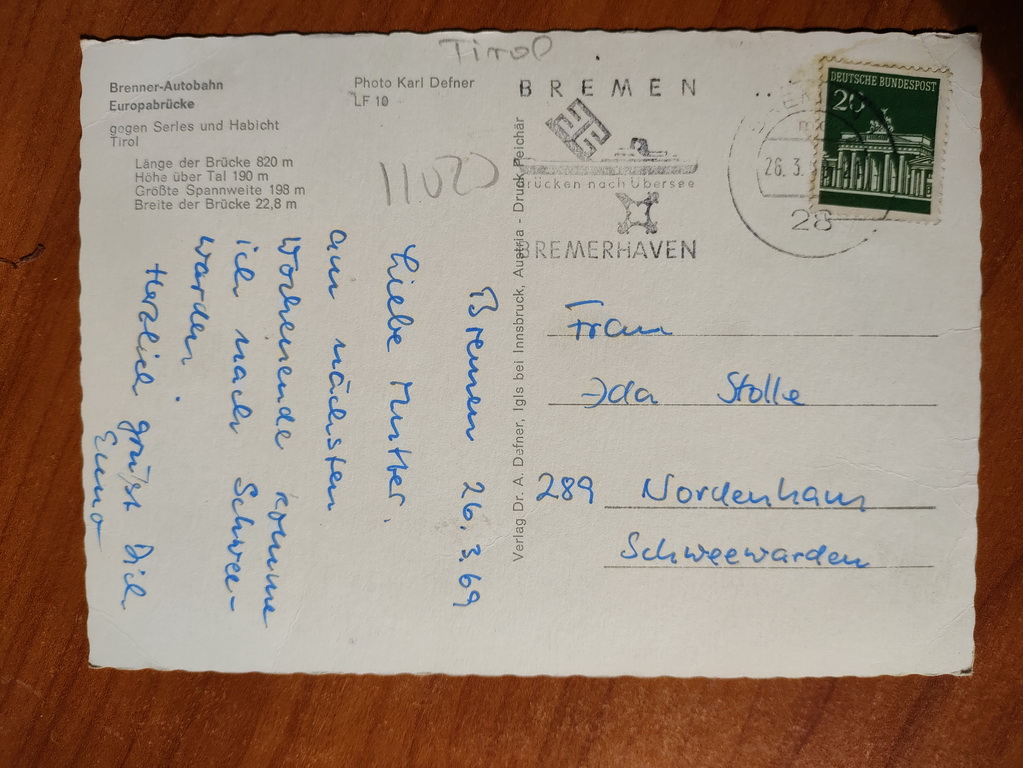 Tirol
Brenner-Autobahn
Europabrücke
gegen Serles und Habicht
Tirol
Länge der Brücke 820 m
Höhe über Tal 190 m
Größte Spannweite 198 m
Breite der Brücke 22,8 m
Photo Karl Defner
LF 10
Verlag Dr. A. Defner, Igls bei Innsbruck, Austria - Druck Peichär
BREMEN
Brücken nach Übersee
BREMERHAVEN
26.3.
28
DEUTSCHE BUNDESPOST
20
Bremen 26.3.69
Liebe Mutter,
am nächsten
Wochenende komme
ich nach Schwee-
warden.
Herzlich grüßt Dich
Enno
Frau
Ida Stolle
289 Nordenham
Schweewarden